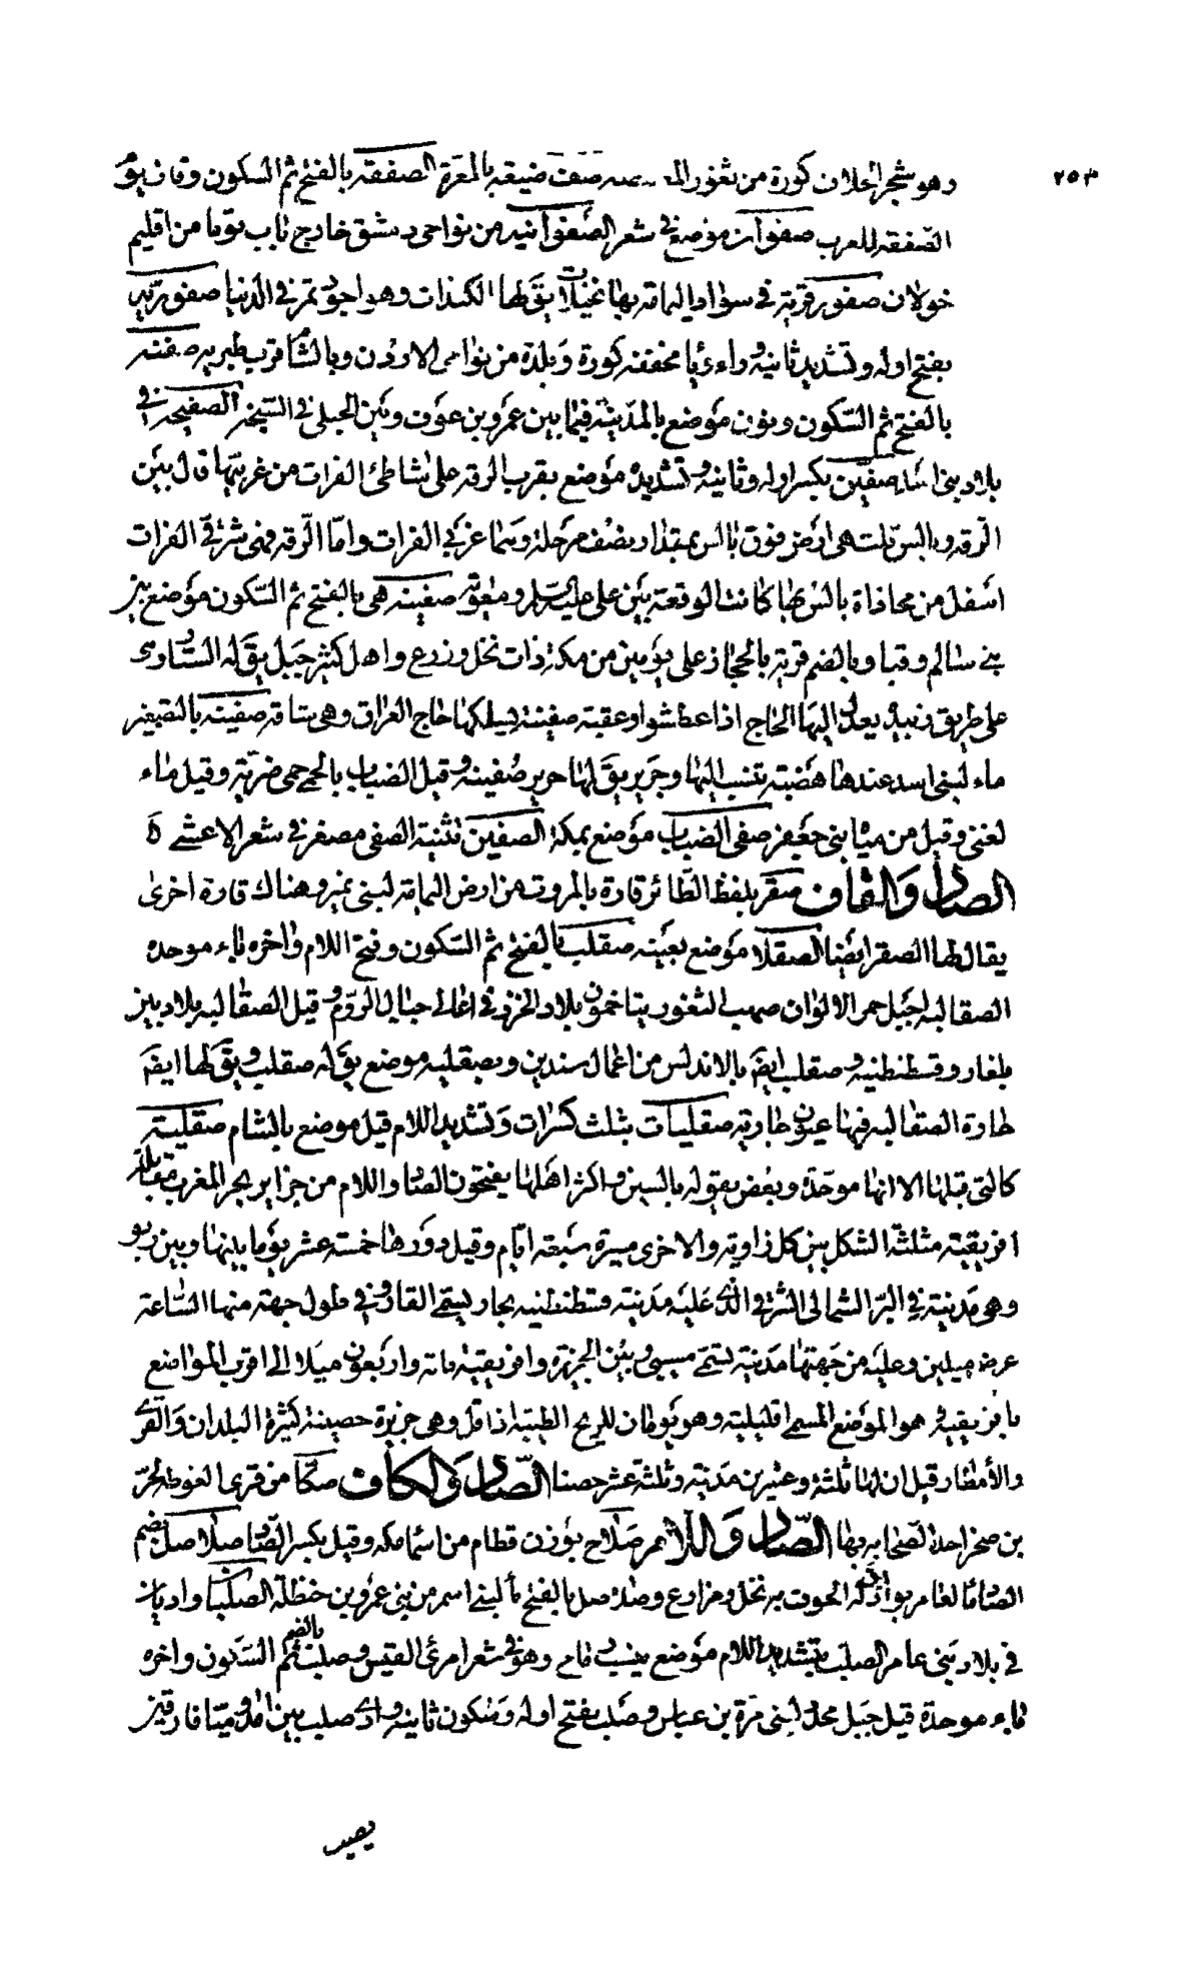 ٢٥٣
وهو شجر الخلاف كورة من ثغور صفت ضيعة بالمعرة الصفقة بالفتح ثم السكون وقاف يوم
الصفقة للعرب صفوان موضع في شعر الصفوانية من نواحى دمشق خارج باب توما من اقليم
خولان صفور قرية في سواد اليمامة بها نخيلات يق لها الكبدات وهو اجود تمر في الدنيا صفورية
بفتح اوله وتشديد ثانيه وراء ويا مخففة كورة وبلدة من نواحى الاردن وبالشام قرب طبرية صفنه
بالفتح ثم السكون ونون موضع بالمدينة فيما بين عمرو بن عوف وبين الحبلى في السبخة الصفيحة في
بلاد بنى اسد صفين بكسر اوله وثانيه وتشديده موضع بقرب الرقة على شاطئ الفرات من غربيها قال بين
الرقة وبالس قلت هى ارض فوق بالس بمقدار نصف مرحلة وهما غربي الفرات واما الرقة فهى شرقي الفرات
اسفل من محاذاة بالس بها كانت الوقعة بين على عليه السلم ومعوية صفينه هى بالفتح ثم السكون موضع بين
بنى سالم وقبا وبالضم قرية بالحجاز على يومين من مكة ذات نخل وزرع واهل كثير جبل يق له الستار وهى
على طريق زبيدة يعدل اليها الحاج اذا عطشوا وعقبة صفينة يسلكها حاج العراق وهى شاقة صفية بالتصغير
ماء لبنى اسد عندها هضبة تنسب اليها وحرير يق لها حرير صفينه وقيل الضباب بالحمى حمى ضرية وقيل ماء
لغنى وقيل من مياه بنى جعفر صفى الضباب موضع بمكة الصفين تثنية الصفى مصغر في شعر الاعشى ه
الصاد والقاف صقر بلفظ الطائر قارة بالمروت من ارض اليمامة لبنى نمير وهناك قارة اخرى
يقال لها الصقر ايضا الصقلا موضع بعينه صقلب بالفتح ثم السكون وفتح اللام واخره باء موحده
الصقالبه جبل حمر الالوان صهب الشعور يتاخمون بلاد الخزر في اعالى جبال الروم وقيل الصقالبه بلاد بين
بلغار وقسطنطنيه وصقلب ايضَ بالاندلس من اعمال سندين وبصقليه موضع يق له صقلب ويق لها ايضَ
حارة الصقالبه فيها عيون جاريه صقليات بثلث كسرات وتشديد اللام قيل موضع بالشام صقلية
كالتى قبلها الا انها موحدة وبعض يقوله بالسين واكثر اهلها يفتحون الصاد واللام من جزاير بحر المغرب مقابلة
افريقية مثلثة الشكل بين كل زاوية والاخرى مسيرة سبعة ايام وقيل دورها خمسة عشر يوما بينها وبين ريو
وهى مدينة في البر الشمالى الشرقى الذي عليه مدينة قسطنطنيه مجاز يسمى الفارو في طول جهة منها الساعة
عرضه ميلين وعليه من جهتها مدينة تسمى مسينى وبين الجزيرة وافريقية مائة واربعون ميلا الى اقرب المواضع
بافريقيه وهو الموضع المسمى اقليبية وهو يومان للريح الطيبة اذا قل وهى جزيرة حصينة كثيرة البلدان والقرى
والأمطار قيل ان لها ثلثة وعشرين مدينة وثلثة عشر حصنا الصاد والكاف صكا من قرى الغوطه لجر
بن صخر احد الصحابه بها الصاد واللام صلاح بوزن قطام من اسما مكه وقيل بكسر الصاد صلاصل بضم
الصاد ما لعامر بواد يق له الحوف به نخل ومزارع وصلاصل بالفتح مأ لبنى اسم من بنى عمرو بن حنظلة الصلبان واديان
في بلاد بنى عامر الصلب بتشديد اللام موضع ينسب وهو في شعر امرئ القيس وصلب بالضم ثم السكون واخره
باء موحدة قيل جبل محدد لبنى مرة بن عباس وصلب بفتح اوله وسكون ثانيه وادى صلب بين امد وميافارقين
يصير